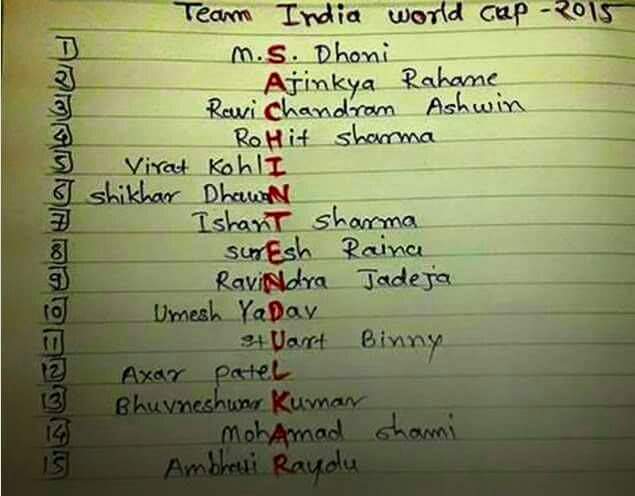 Team India world cup - 2015
1 M.S. Dhoni
2 Ajinkya Rahane
3 Ravi Chandram Ashwin
4 RoHit sharma
5 Virat KohlI
6 shikhar DhawaN
7 IshanT sharma
8 surEsh Raina
9 RaviNdra Jadeja
10 Umesh YaDav
11 stUart Binny
12 Axar pateL
13 Bhuvneshwar Kumar
14 MohAmad shami
15 Ambhati Raydu